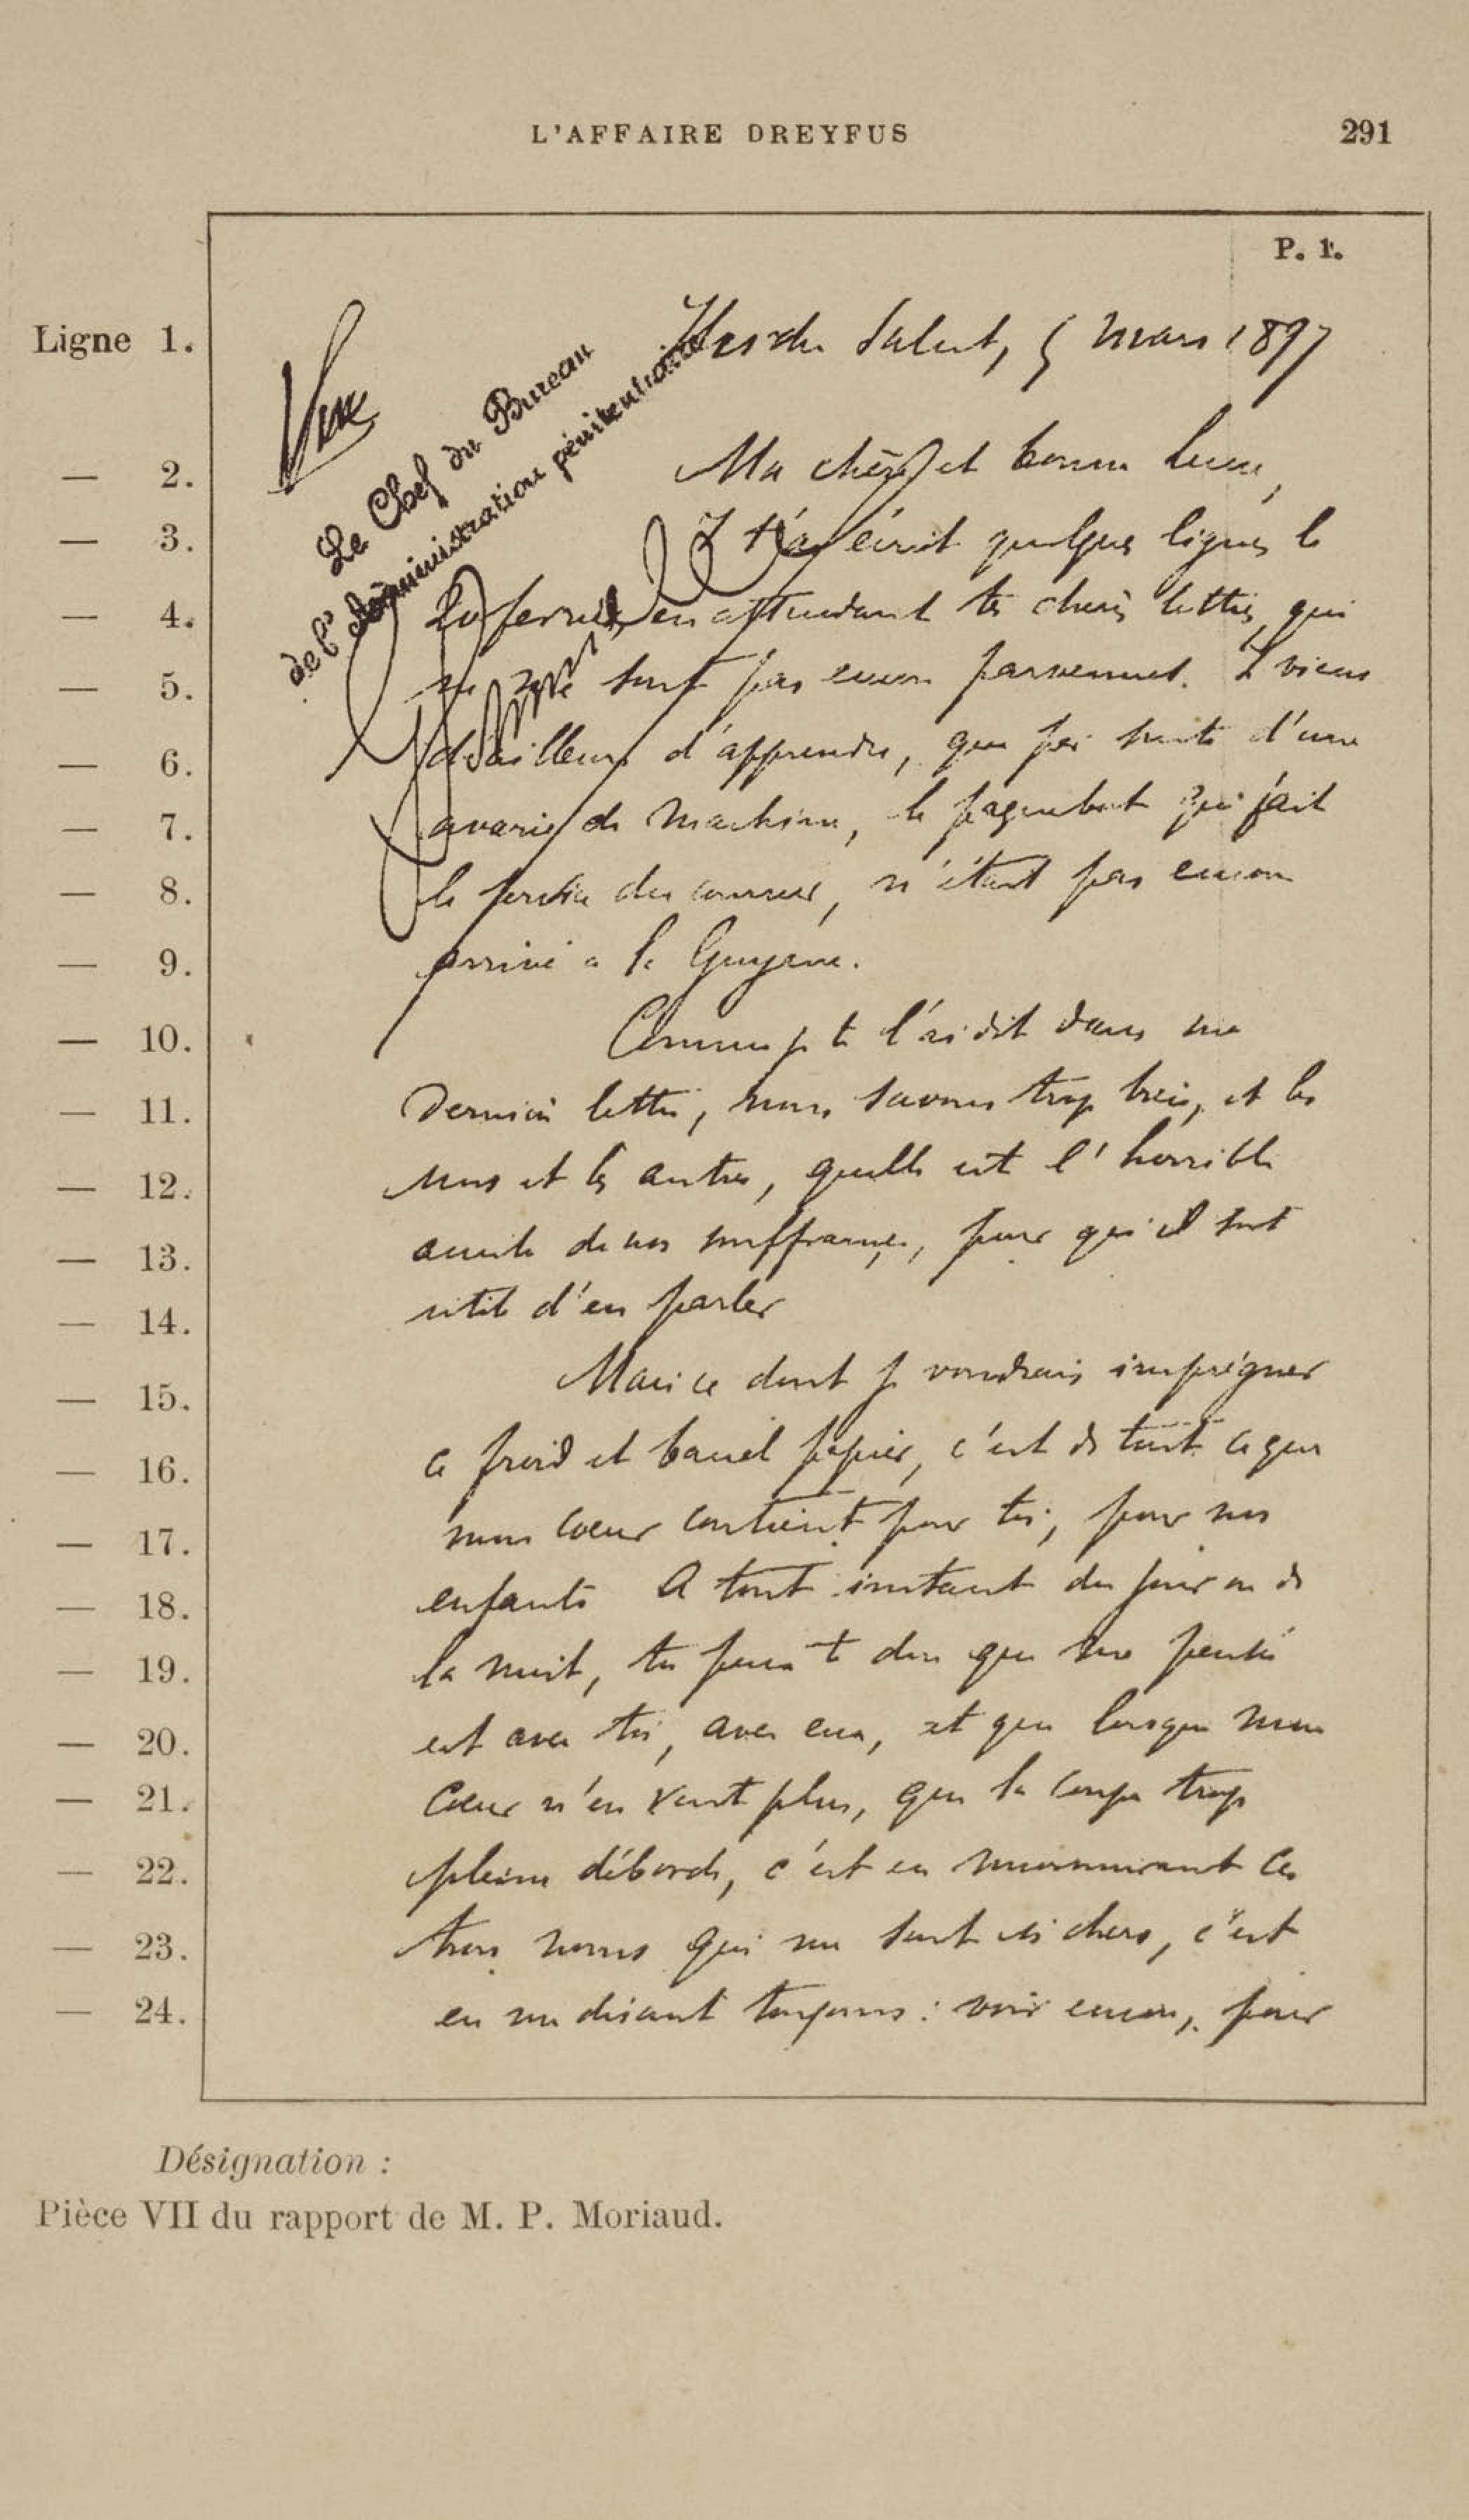 L'AFFAIRE DREYFUS
291
P. 1.
Ligne 1.
Iles du Salut, 5 mars 1897
Vu
Le Chef du Bureau
de l'Administration pénitentiaire
— 2.
Ma chère et bonne Lucie,
— 3.
Je t'ai écrit quelques lignes le
— 4.
20 fevrier, en attendant tes chères lettres qui
— 5.
ne me sont pas encore parvenues. Je viens
— 6.
d'ailleurs d'apprendre, que par suite d'une
— 7.
avarie de machine, le paquebot qui fait
— 8.
le service du courrier, n'étant pas encore
— 9.
arrivé a la Guyane.
— 10.
Comme je te l'ai dit dans ma
— 11.
dernière lettre, nous savons trop bien, et les
— 12.
uns et les autres, quelle est l'horrible
— 13.
acuité de nos souffrances, pour qu'il soit
— 14.
utile d'en parler
— 15.
Mais ce dont je voudrais imprégner
— 16.
ce froid et banal papier, c'est de tout ce que
— 17.
mon coeur contient pour toi, pour nos
— 18.
enfants A tout instant du jour ou de
— 19.
la nuit, tu peux te dire que ma pensée
— 20.
est avec toi, avec eux, et que lorsque mon
— 21.
Coeur n'en peut plus, que la coupe trop
— 22.
pleine déborde, c'est en murmurant ces
— 23.
trois noms qui me sont si chers, c'est
— 24.
en me disant toujours : voir encore, pour
Désignation :
Pièce VII du rapport de M. P. Moriaud.